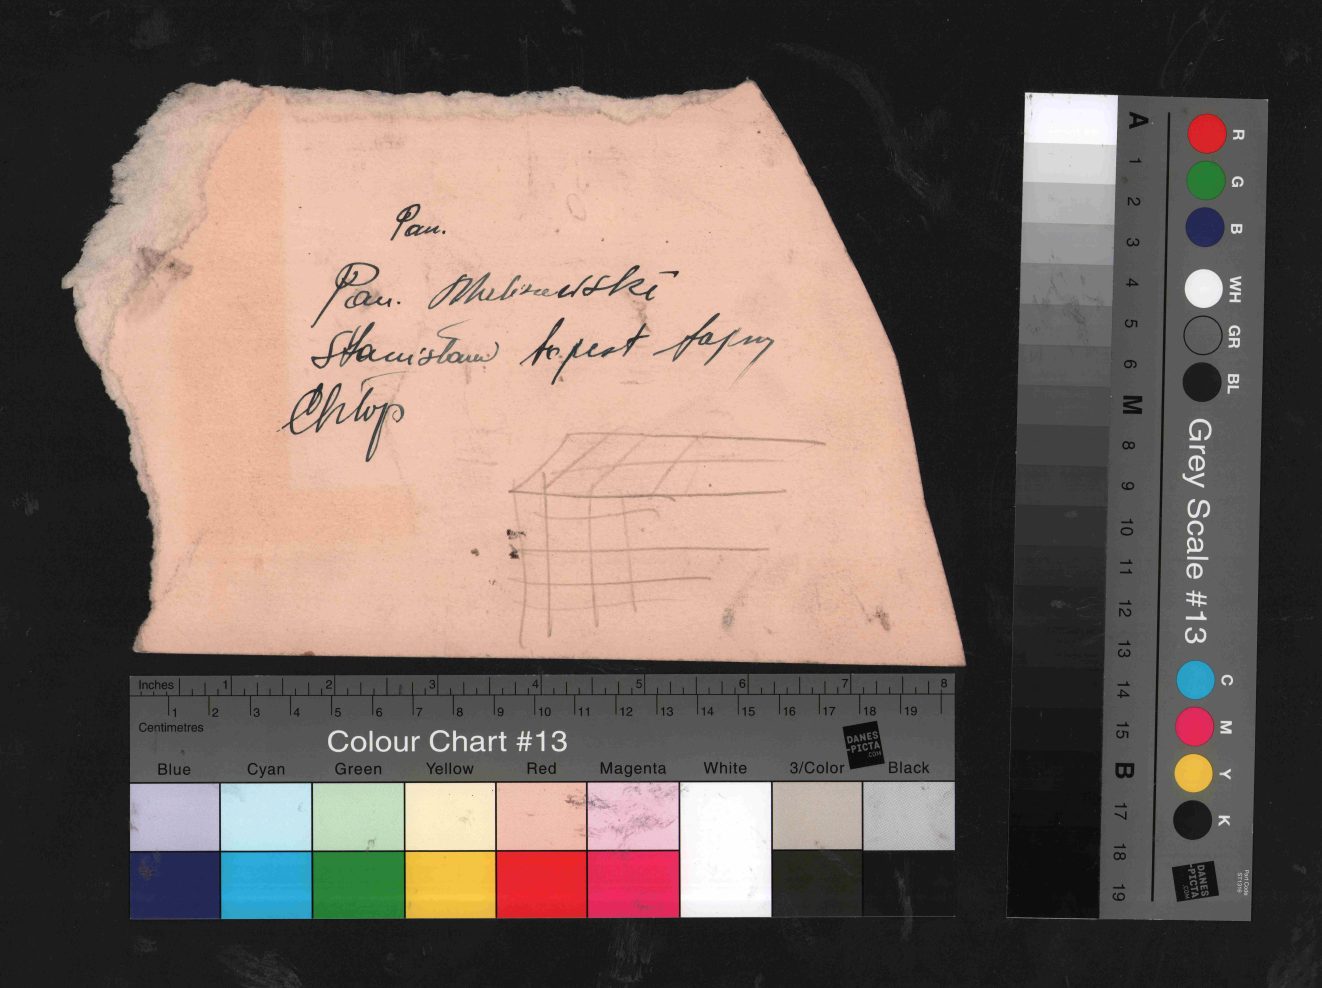 Pan.
Pan. Maliszewski
Stanisław to jest fajny
Chłop
Inches 1 2 3 4 5 6 7 8
1 2 3 4 5 6 7 8 9 10 11 12 13 14 15 16 17 18 19
Centimetres
Colour Chart #13
DANES
-PICTA
.COM
Blue Cyan Green Yellow Red Magenta White 3/Color Black
A 1 2 3 4 5 6 M 8 9 10 11 12 13 14 15 B 17 18 19
R G B WH GR BL
Grey Scale #13
C M Y K
DANES
-PICTA
.COM
Part Code
ST1316